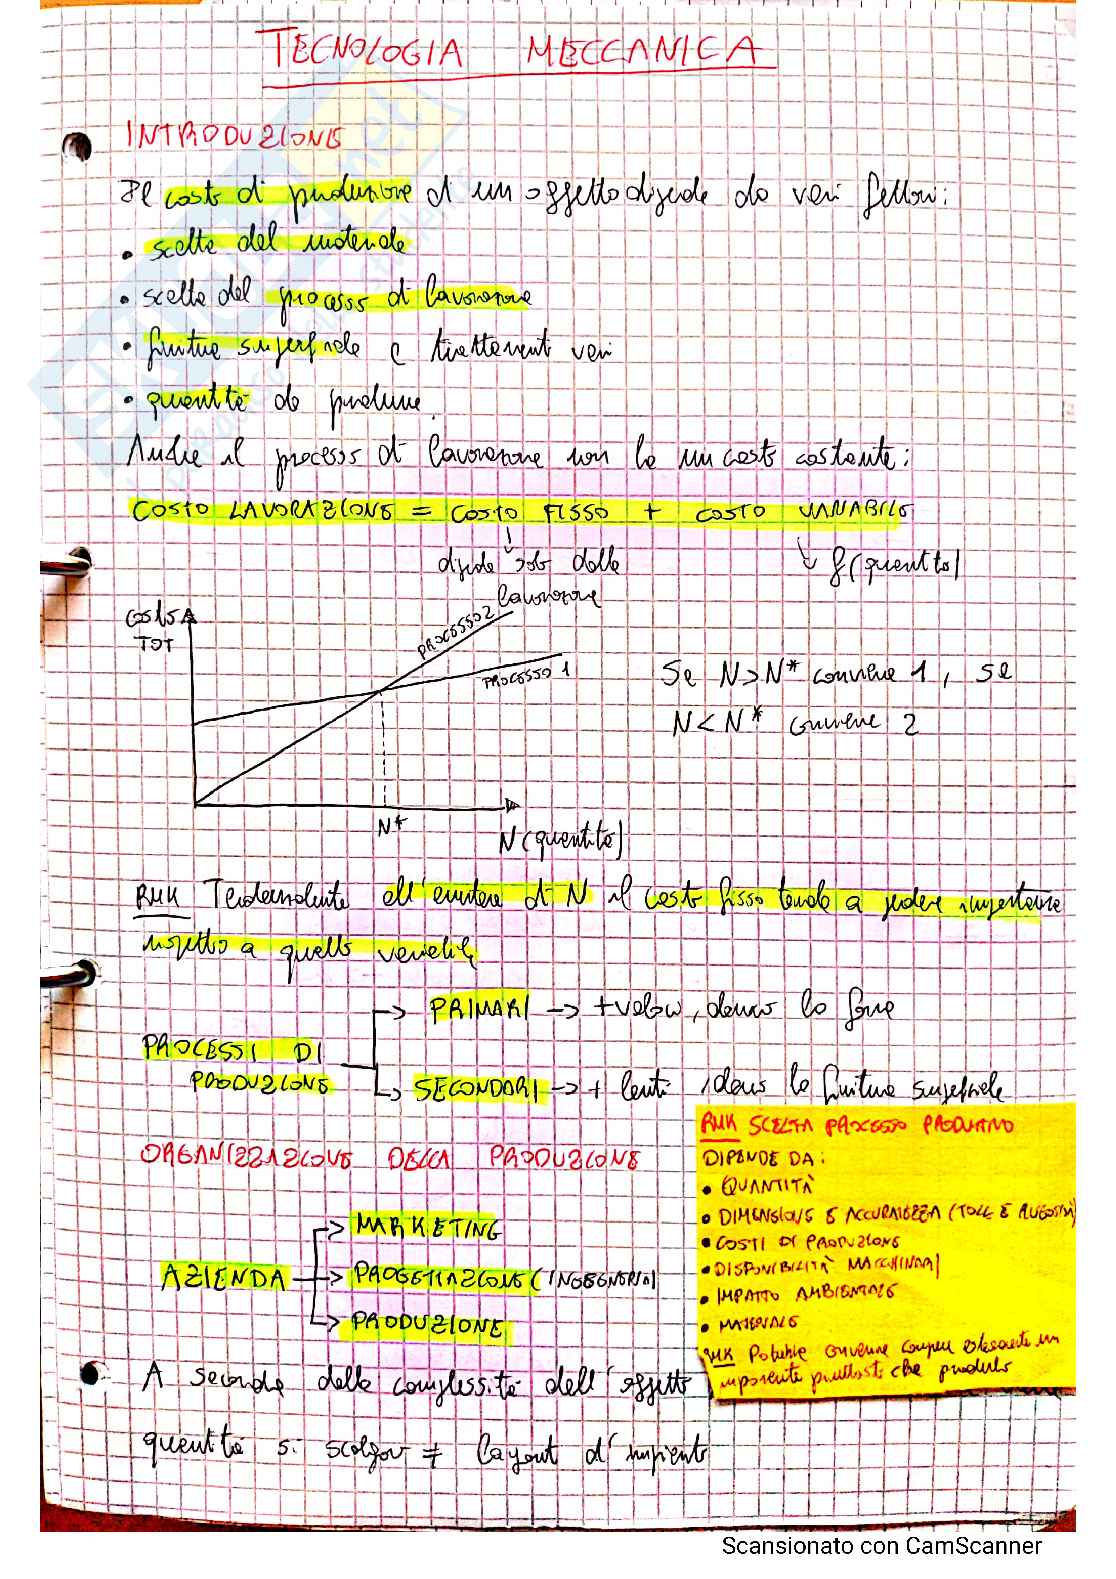 TECNOLOGIA MECCANICA
INTRODUZIONE
Il costo di produzione di un oggetto dipende da vari fattori:
• scelta del materiale
• scelta del processo di lavorazione
• finitura superficiale e trattamenti vari
• quantità da produrre.
Anche il processo di lavorazione non ha un costo costante:
COSTO LAVORAZIONE = COSTO FISSO + COSTO VARIABILE
dipende solo dalla lavorazione
f(quantità)
COSTO TOT
PROCESSO 2
PROCESSO 1
N*
N (quantità)
Se N>N* conviene 1, se
N<N* conviene 2
RMK Tendenzialmente all'aumentare di N il costo fisso tende a perdere importanza
rispetto a quello variabile
PROCESSI DI
PRODUZIONE
PRIMARI → + veloci, danno la forma
SECONDARI → + lenti, danno la finitura superficiale
ORGANIZZAZIONE DELLA PRODUZIONE
AZIENDA
MARKETING
PROGETTAZIONE (INGEGNERIA)
PRODUZIONE
RMK SCELTA PROCESSO PRODUTTIVO
DIPENDE DA:
• QUANTITÀ
• DIMENSIONI E ACCURATEZZA (TOLL E RUGOSITÀ)
• COSTI DI PRODUZIONE
• DISPONIBILITÀ MACCHINARI
• IMPATTO AMBIENTALE
• MATERIALE
RMK Potrebbe convenire comprare esternamente un
componente piuttosto che produrlo
A seconda della complessità dell'oggetto
quantità si scelgono ≠ layout d'impianto
Scansionato con CamScanner